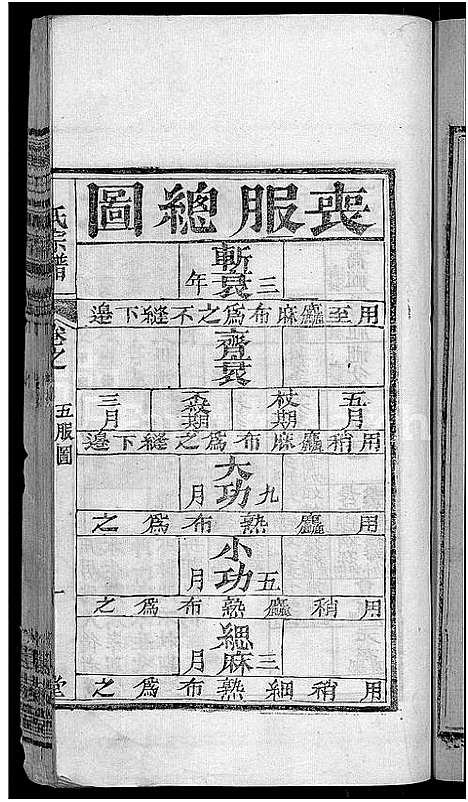 喪服總圖
斬衰
三年
用至麤麻布為之不縫下邊
齊衰
五月
杖期
不杖期
三月
用稍麤麻布為之縫下邊
大功
九月
用麤熟布為之
小功
五月
用稍麤熟布為之
緦麻
三月
用稍細熟布為之
氏宗譜
卷之
五服圖
一
堂